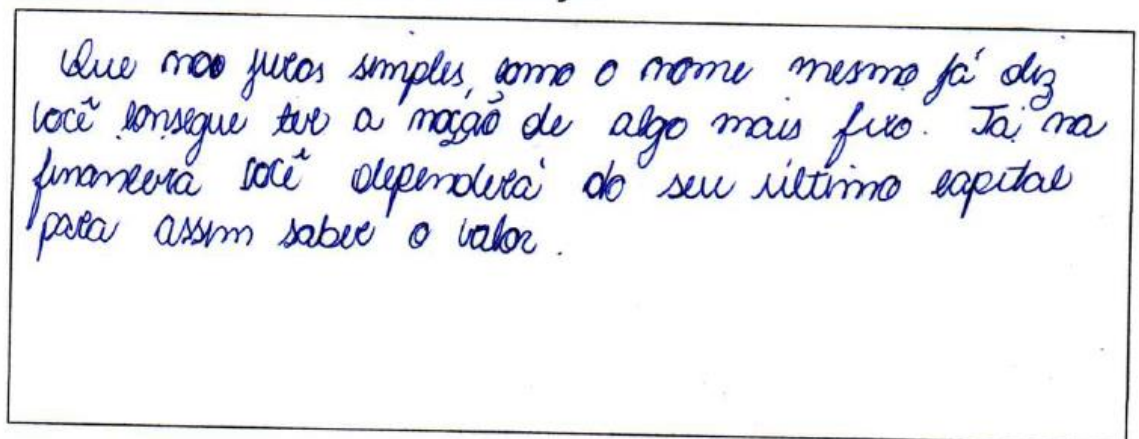 Que nos juros simples, como o nome mesmo já diz
você consegue ter a noção de algo mais fixo. Já na
financeira você dependerá do seu último capital
para assim saber o valor.